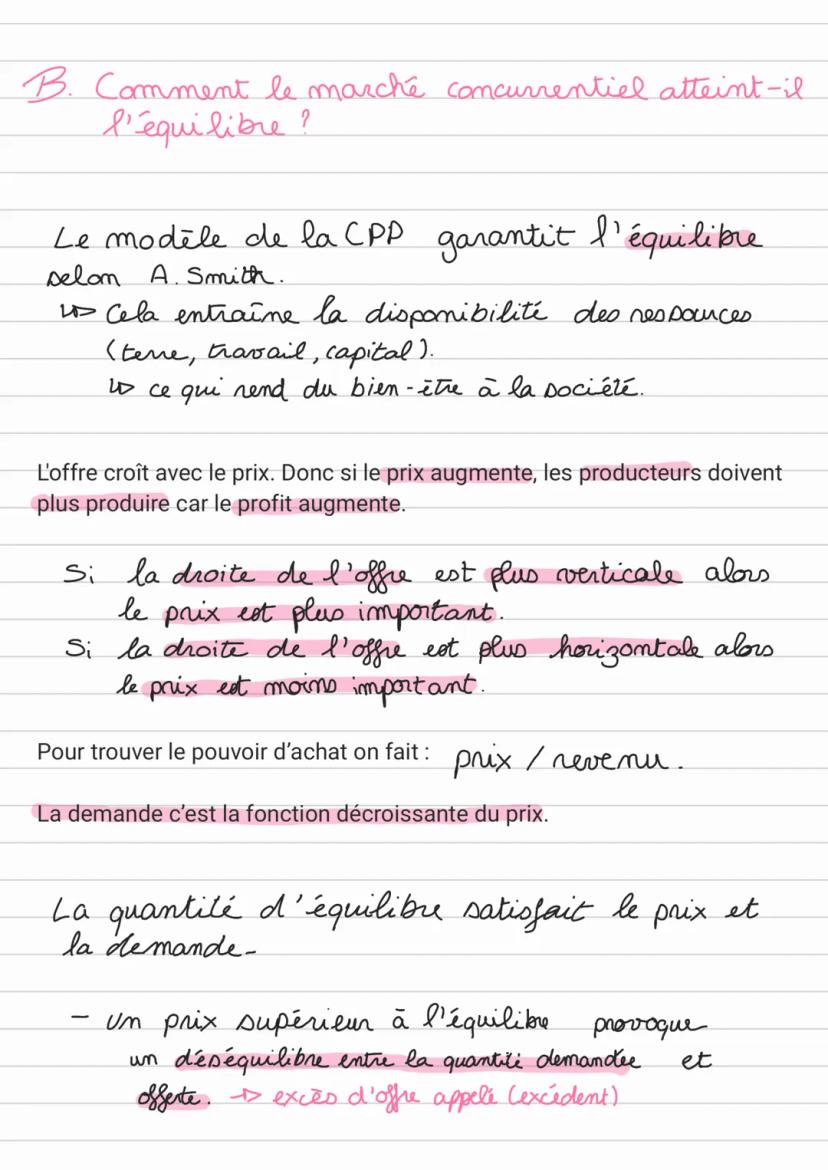 B. Comment le marché concurrentiel atteint-il
l'équilibre ?
Le modèle de la CPP garantit l'équilibre
selon A. Smith.
↳> Cela entraîne la disponibilité des ressources
(terre, travail, capital).
↳> ce qui rend du bien-être à la société.
L'offre croît avec le prix. Donc si le prix augmente, les producteurs doivent
plus produire car le profit augmente.
Si la droite de l'offre est plus verticale alors
le prix est plus important.
Si la droite de l'offre est plus horizontale alors
le prix est moins important.
Pour trouver le pouvoir d'achat on fait : prix / revenu.
La demande c'est la fonction décroissante du prix.
La quantité d'équilibre satisfait le prix et
la demande-
- Un prix supérieur à l'équilibre provoque
un déséquilibre entre la quantité demandée et
offerte. -> excès d'offre appelé (excédent)